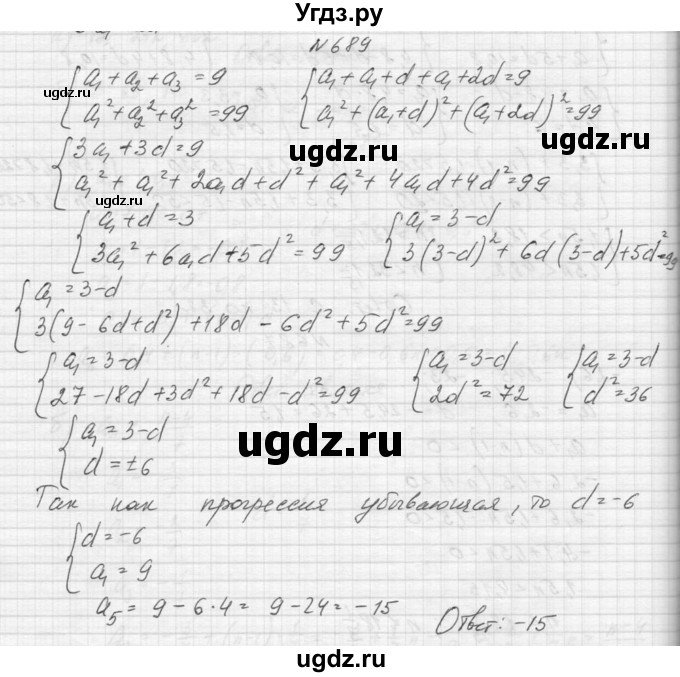 Угдз.ру
N 689
{a₁ + a₂ + a₃ = 9 {a₁ + a₁ + d + a₁ + 2d = 9
{a₁² + a₂² + a₃² = 99 {a₁² + (a₁+d)² + (a₁+2d)² = 99
ugdz.ru ugdz.ru
{3a₁ + 3d = 9
{a₁² + a₁² + 2a₁d + d² + a₁² + 4a₁d + 4d² = 99
ugdz.ru
{a₁ + d = 3 {a₁ = 3 - d
{3a₁² + 6a₁d + 5d² = 99 {3(3-d)² + 6d(3-d) + 5d² = 99
{a₁ = 3 - d
{3(9 - 6d + d²) + 18d - 6d² + 5d² = 99
{a₁ = 3 - d {a₁ = 3 - d {a₁ = 3 - d
{27 - 18d + 3d² + 18d - d² = 99 {2d² = 72 {d² = 36
{a₁ = 3 - d
{d = ±6
ugdz.ru ugdz.ru
Так как прогрессия убывающая, то d = -6
{d = -6
{a₁ = 9
ugdz.ru
a₅ = 9 - 6·4 = 9 - 24 = -15
Ответ: -15
ugdz.ru